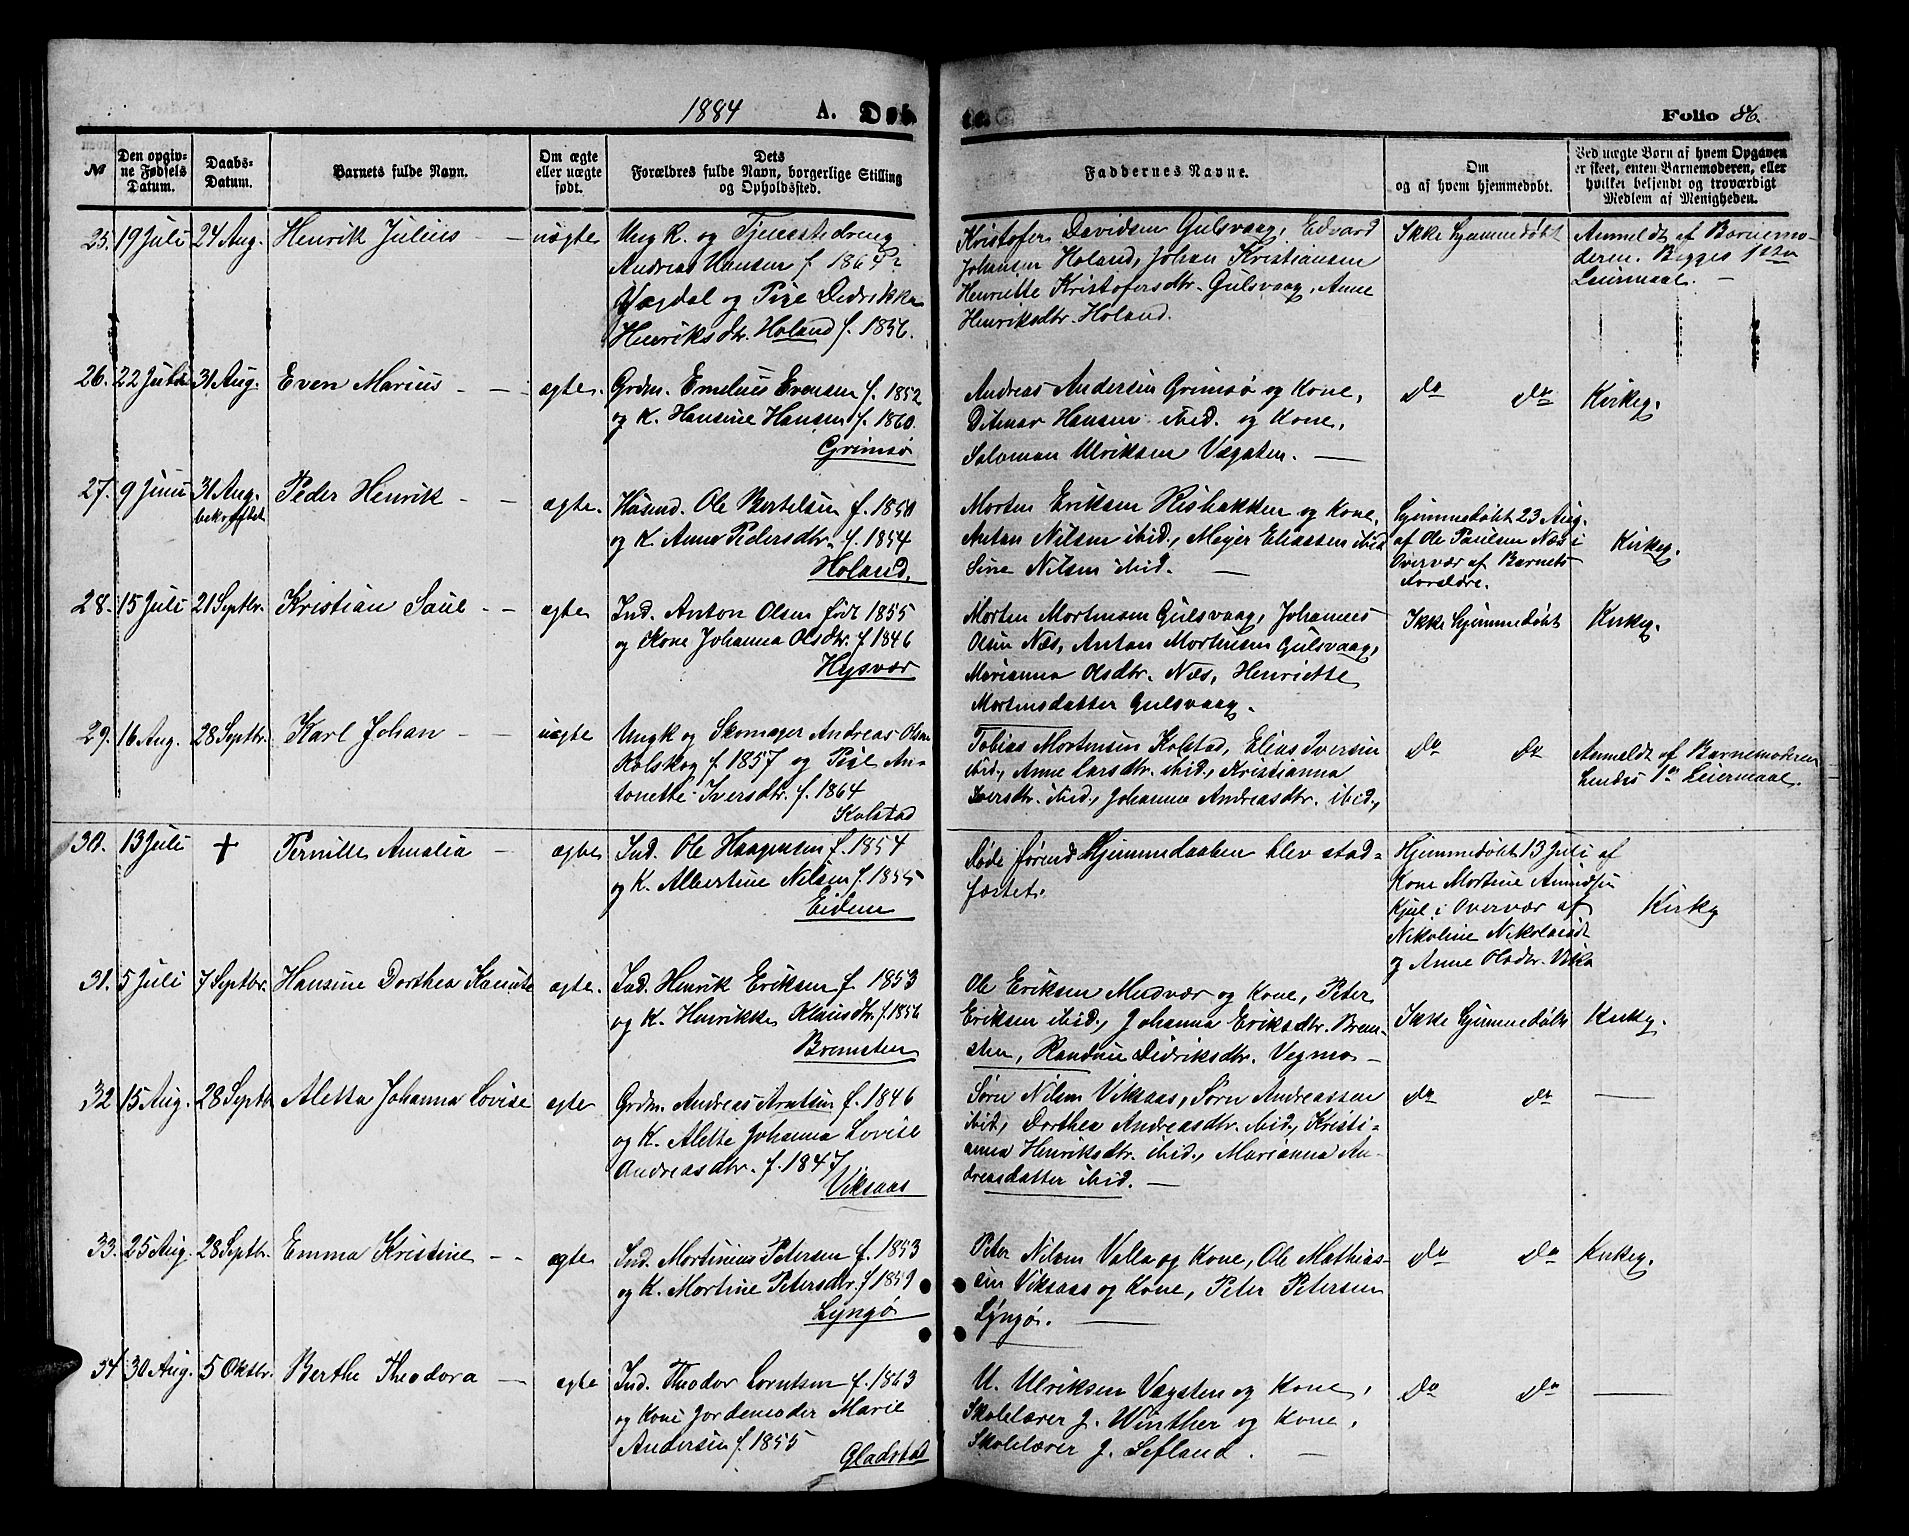 1884 A. Døb te. Folio 86.
№ Den opgivne Fødsels Datum. Daabs-Datum. Barnets fulde Navn. Om ægte eller uægte født. Dets Forældres fulde Navn, borgerlige Stilling og Opholdssted. Faddernes Navne. Om og af hvem hjemmedøbt. Ved uægte Børn af hvem Opgaven er skeet, enten Barnemoderen, eller hvilket betjendt og troværdigt Medlem af Menigheden.
25. 19 Juli 24 Aug. Henrik Julius - - uægte
Ungk. og Tjenestedreng
Andreas Hansen f. 1864?
Vægdal og Pige Didrikke
Henriksdtr. Holand f. 1856.
Kristofer Davidsen Gulsvaag, Edvard
Johansen Holand, Johan Kristiansen
Henriette Kristofersdtr. Gulsvaag, Anne
Henriksdtr. Holand.
Ikke hjemmedøbt
Anmeldt af Barnemo-
deren. Begges 1ste
Leiermaal. -
26. 22 Juli 31 Aug. Even Marius - - ægte.
Grdm. Emelius Evensen f. 1852
og K. Hansine Hansen f. 1860.
Grimsø
Andreas Andersen Grimsø og Kone,
Ditmar Hansen ibid. og Kone,
Salomon Ulriksen Vægsten. -
do do Kirkeg.
27. 9 Juni 31 Aug. bekræftet Peder Henrik - - ægte.
Husmd. Ole Bertelsen f. 1850
og K. Anne Pedersdtr. f. 1854
Holand.
Morten Eriksen Risbakken og Kone,
Antan Nilsen ibid., Meyer Eliassen ibid
Sine Nilsen ibid. -
Hjemmedøbt 23 Aug.
af Ole Paulsen Næs i
Overvær af Barnets
Forældre.
Kirkeg.
28. 15 Juli 21 Septbr. Kristian Saul - - ægte
Ind. Anton Olsen født 1855
og Kone Johanna Olsdtr. f. 1846
Hysvær
Morten Mortensen Gulsvaag, Johannes
Olsen Næs, Antan Mortensen Gulsvaag,
Marianna Olsdtr. Næs, Henriette
Mortensdatter Gulsvaag.
Ikke hjemmedøbt Kirkeg.
29. 16 Aug. 28 Septbr. Karl Johan - - uægte
Ungk og Skomager Andreas Olsen
Kolskog f. 1857 og Pige An-
tonette Iversdtr. f. 1864
Kolstad
Tobias Mortensen Kolstad, Elias Iversen
ibid., Anne Larsdtr. ibid., Kristianna
Iversdtr. ibid., Johanna Andreasdtr. ibid.,
do do
Anmeldt af Barnemoderen
1ste Leiermaal.
30. 13 Juli + Pernille Amalia - ægte
Ind. Ole Haagensen f. 1854
og K. Albertine Nilsen f. 1855
Eidem
Døde førend Hjemmedaaben blev stad-
fæstet.
Hjemmedøbt 13 Juli af
Kone Mortine Amundsen
Kjul i Overvær af
Nikoline Nikolaisdt
og Anne Olsdtr. Vika
Kirkg
31. 5 Juli 7 Septbr. Hansine Dorthea Kanute ægte.
Ind. Henrik Eriksen f. 1853
og K. Henrikke Klausdtr. f. 1856
Bremsten
Ole Eriksen Mudvær og Kone, Peter
Eriksen ibid., Johanna Eriksdtr. Brem-
sten, Randine Didriksdtr. Vegmo -
Ikke hjemmedøbt Kirkeg.
32 15 Aug. 28 Septbr Aletta Johanna Lovise ægte
Grdm. Andreas Arntsen f. 1846
og K. Alette Johanna Lovise
Andreasdtr. f. 1847
Viksaas
Sørn Nilsen Viksaas, Sørn Andreassen
ibid, Dorthea Andreasdtr. ibid., Kristi-
anna Henriksdtr. ibid., Marianna An-
dreasdatter ibid. -
do do -
33. 25 Aug. 28 Septbr. Emma Kristine - - ægte
Ind. Mortinius Petersen f. 1853
og K. Mortine Petersdtr. f 1859
Lyngø
Peter Nilsen Valla og Kone, Ole Mathias-
sen Viksaas og Kone, Peter Petersen
Lyngø. -
do do Kirkeg.
34 30 Aug. 5 Oktbr. Berthe Theodora - ægte
Ind. Theodor Lorntsen f. 1863
og Kone Jordemoder Marie
Andersen f. 1855
Gladstad
U. Ulriksen Vægsten og Kone,
Skolelærer J. Winther og Kone,
Skolelærer J. Lefland. -
do do -